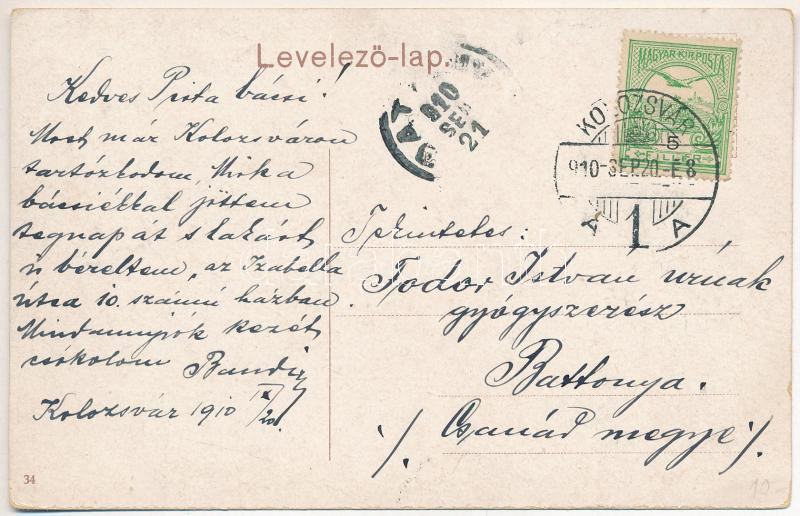 Levelező-lap.
Kedves Pista bácsi!
Most már Kolozsváron
tartózkodom, Miska
bácsiékkal jöttem
tegnap át s lakást
is béreltem, az Izabella
útca 10. számú házban.
Mindannyiók kezét
csókolom Bandi
Kolozsvár 1910 IX/20
Tekintetes:
Fodor István urnak
gyógyszerész
Battonya.
/. Csanád megye /.
MAGYAR KIR. POSTA
5
FILLÉR
KOLOZSVÁR
910-SEP.20.-E.8
A 1 A
BAT
910
SEP
21
34
10